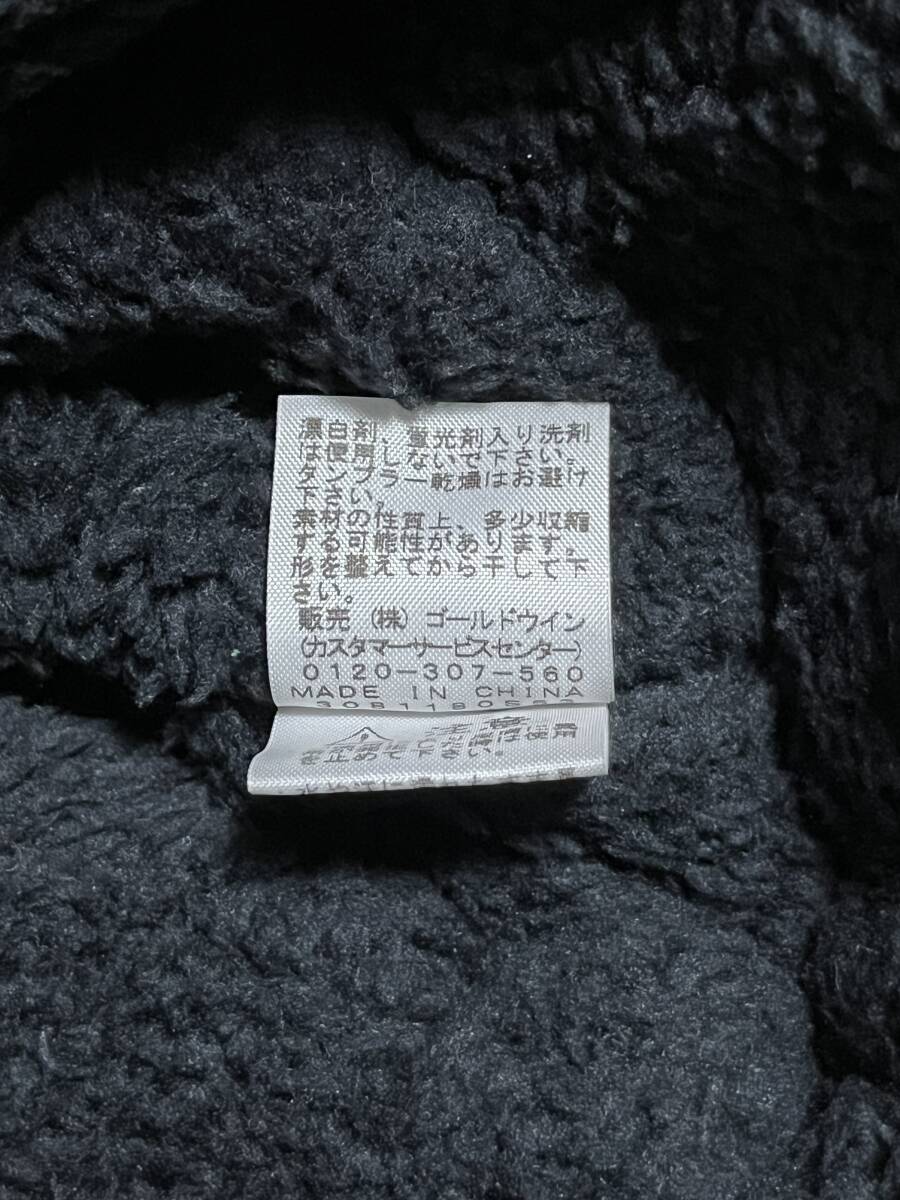 漂白剤、蛍光剤入り洗剤
は使用しないで下さい。
タンブラー乾燥はお避け
下さい。
素材の性質上、多少収縮
する可能性があります。
形を整えてから干して下
さい。
販売 (株) ゴールドウイン
(カスタマーサービスセンター)
0120-307-560
MADE IN CHINA